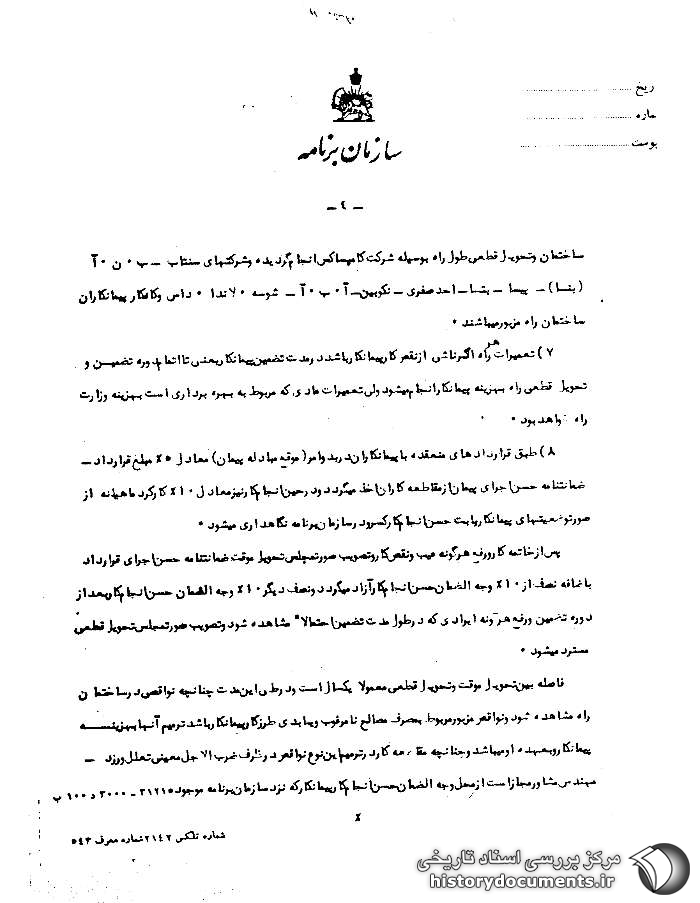 ریخ
ماره
یوست
سازمان برنامه
- ٤ -
ساختمان وتحویل قطعی طول راه بوسیله شرکت کامپساکس انجام گردیده وشرکتهای سنتاب - ب ۰ ن ۰ آ
(بنا) - پیما - بتسا - احد صفری - نکوبین - آ ۰ ب ۰ آ - شوسه ۰ لاندا ۰ داس وکامکار پیمانکاران
ساختمان راه مزبورمیباشند ۰
۷ ) تعمیرات هر راه اگرناشی ازنقص کارپیمانکارباشد درمدت تضمین پیمانکاریعنی تا اتمام دوره تضمین و
تحویل قطعی راه بهزینه پیمانکارانجام میشود ولی تعمیرات عادی که مربوط به بهره برداری است بهزینه وزارت
راه خواهد بود ۰
۸ ) طبق قرارداد های منعقده با پیمانکاران دربدوامر ( موقع مبادله پیمان ) معادل ٥٪ مبلغ قرارداد -
ضمانتنامه حسن اجرای پیمان ازمقاطعه کاران اخذ میگردد ودرحین انجام کارنیزمعادل ۱۰٪ کارکرد ماهیانه از
صورتوضعیتهای پیمانکاربابت حسن انجام کارکسرودرسازمان برنامه نگاهداری میشود ۰
پس ازخاتمه کارورفع هرگونه عیب ونقص کاروتصویب صورتمجلس تحویل موقت ضمانتنامه حسن اجرای قرارداد
باضافه نصف از ۱۰٪ وجه الضمان حسن انجام کارآزاد میگردد ونصف دیگر ۱۰٪ وجه الضمان حسن انجام کاربعد از
دوره تضمین ورفع هرگونه ایرادی که درطول مدت تضمین احتمالا" مشاهده شود وتصویب صورتمجلس تحویل قطعی
مسترد میشود ۰
فاصله بین تحویل موقت وتحویل قطعی معمولا یکسال است ودرطی این مدت چنانچه نواقصی درساختمان
راه مشاهده شود ونواقص مزبورمربوط بمصرف مصالح نامرغوب ویابدی طرزکارپیمانکارباشد ترمیم آنها بهزینه
پیمانکاروبعهده اومیباشد وچنانچه مقاطعه کاردرترمیم این نوع نواقص درظرف ضرب الاجل معینی تعلل ورزد -
مهندس مشاورمجازاست ازمحل وجه الضمان حسن انجام کارپیمانکارکه نزد سازمان برنامه موجود ۳۱۲۱٥ - ۳۰۰۰ د ۱۰۰ ب
٪
شماره تلکس ۲۱٤۲ شماره معرف ٥٤۳
مرکز بررسی اسناد تاریخی
historydocuments.ir